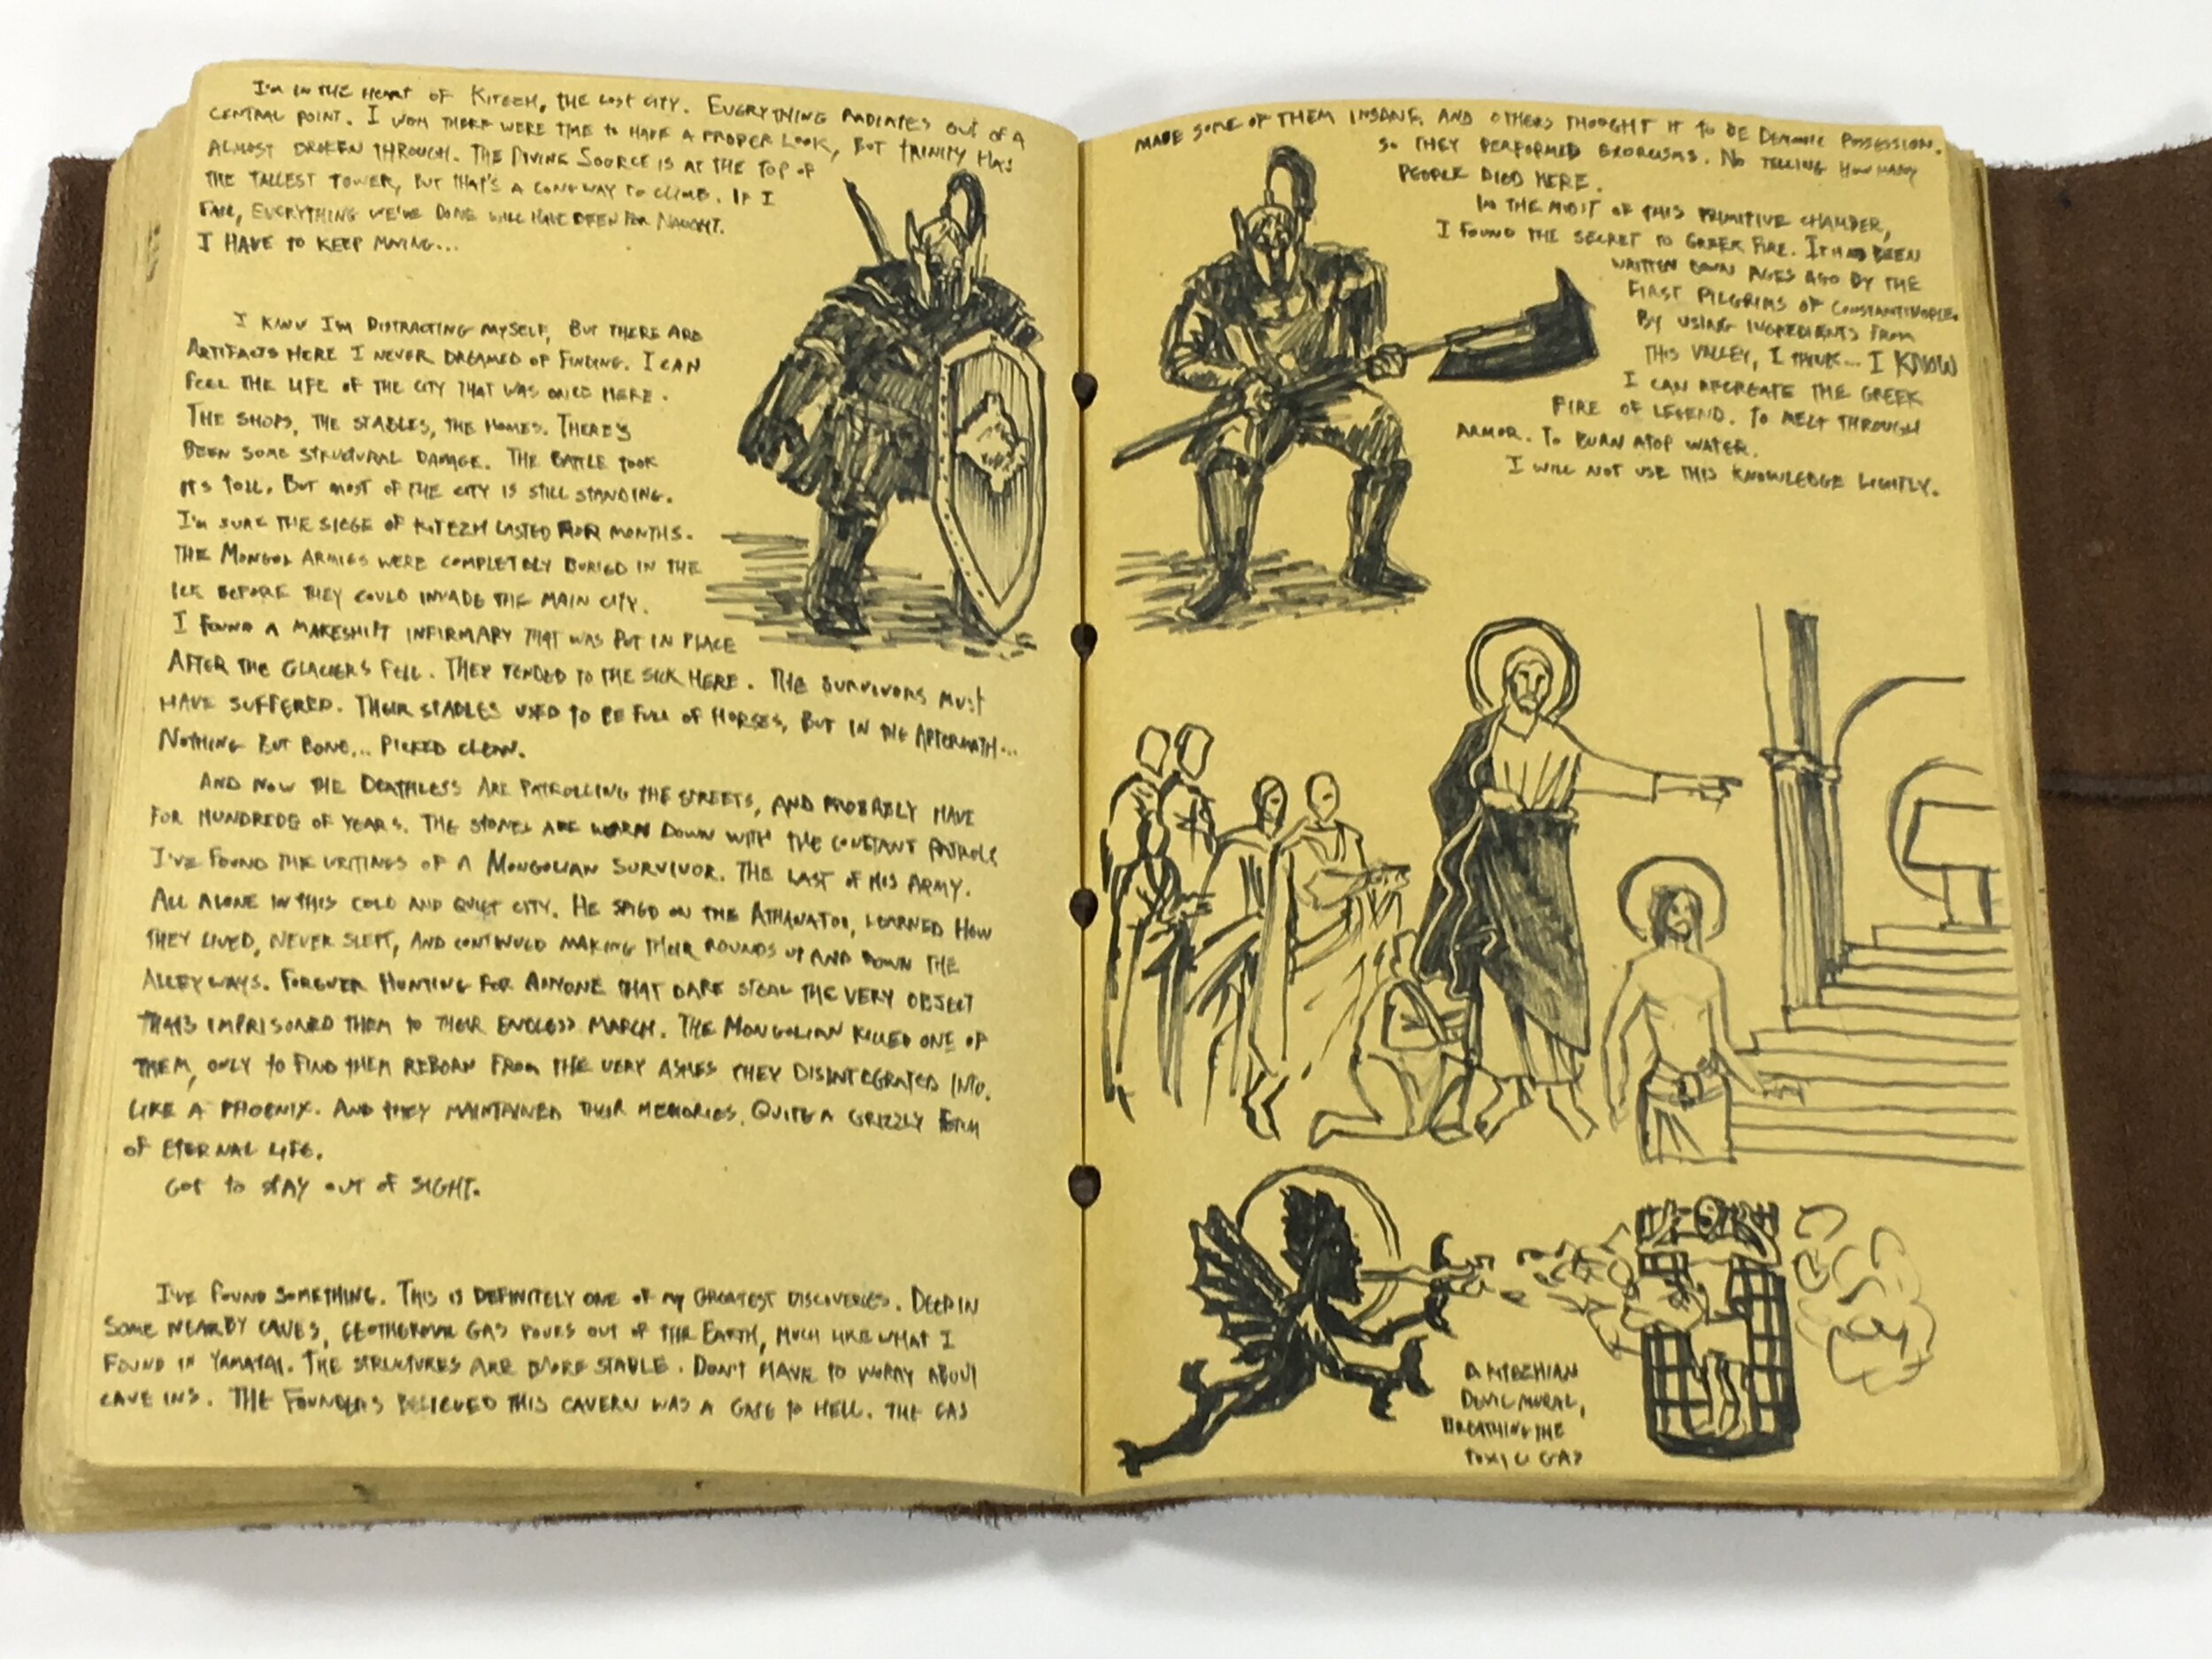 I'm in the heart of Kitezh, the lost city. Everything radiates out of a
central point. I wish there were time to have a proper look, but Trinity has
almost broken through. The Divine Source is at the top of
the tallest tower, but that's a long way to climb. If I
fail, everything we've done will have been for naught.
I have to keep moving...
I know I'm distracting myself, but there are
artifacts here I never dreamed of finding. I can
feel the life of the city that was once here.
The shops, the stables, the homes. There's
been some structural damage. The battle took
its toll. But most of the city is still standing.
I'm sure the siege of Kitezh lasted for months.
The Mongol armies were completely buried in the
ice before they could invade the main city.
I found a makeshift infirmary that was put in place
after the glaciers fell. They tended to the sick here. The survivors must
have suffered. Their stables used to be full of horses, but in the aftermath...
nothing but bone... picked clean.
And now the Deathless are patrolling the streets, and probably have
for hundreds of years. The stones are worn down with the constant patrols
I've found the writings of a Mongolian survivor. The last of his army.
All alone in this cold and quiet city. He spied on the Athanatoi, learned how
they lived, never slept, and continued making their rounds up and down the
alleyways. Forever hunting for anyone that dare steal the very object
that's imprisoned them to their endless march. The Mongolian killed one of
them, only to find them reborn from the very ashes they disintegrated into.
Like a phoenix. And they maintained their memories. Quite a grizzly form
of eternal life.
Got to stay out of sight.
I've found something. This is definitely one of my greatest discoveries. Deep in
some nearby caves, geothermal gas pours out of the Earth, much like what I
found in Yamatai. The structures are more stable. Don't have to worry about
cave ins. The Founders believed this cavern was a gate to Hell. The gas
made some of them insane, and others thought it to be demonic possession.
So they performed exorcisms. No telling how many
people died here.
In the midst of this primitive chamber,
I found the secret to Greek Fire. It had been
written down ages ago by the
first pilgrims of Constantinople.
By using ingredients from
this valley, I think... I KNOW
I can recreate the Greek
Fire of legend. To melt through
armor. To burn atop water.
I will not use this knowledge lightly.
A Kitezhian
Devil mural,
breathing the
toxic gas